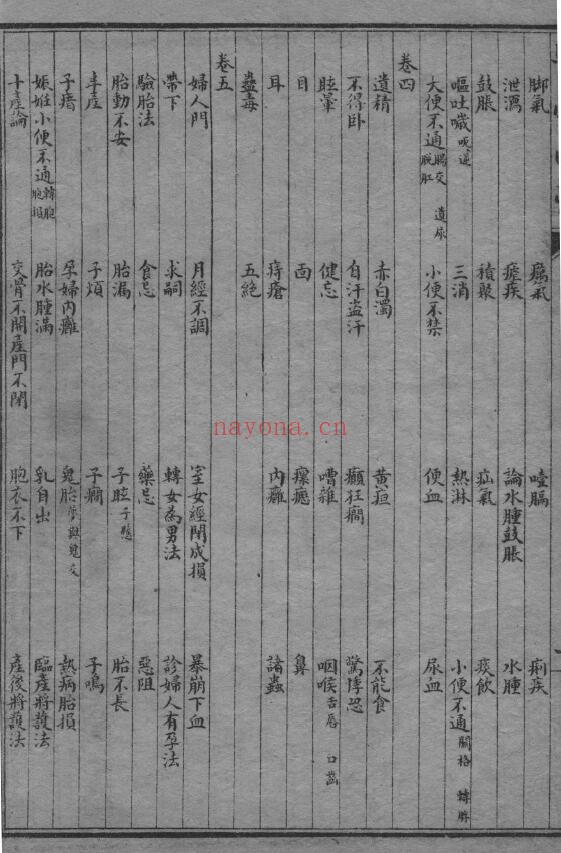 脚氣 癘氣 噎膈 痢疾
泄瀉 瘧疾 論水腫鼓脹 水腫
鼓脹 積聚 疝氣 痰飲
嘔吐噦 咳逆 三消 熱淋 小便不通 關格 轉脬
大便不通 腸交 脫肛 遺尿 小便不禁 便血 尿血
卷四
遺精 赤白濁 黃疸 不能食
不得卧 自汗盜汗 癲狂癇 驚悸恐
眩暈 健忘 嘈雜 咽喉 舌唇 口齒
目 面 瘰癧 鼻
耳 痔瘡 內癰 諸蟲
蠱毒 五絕
卷五
婦人門 月經不調 室女經閉成損 暴崩下血
帶下 求嗣 轉女為男法 診婦人有孕法
驗胎法 食忌 藥忌 惡阻
胎動不安 胎漏 子眩 子懸 胎不長
半產 子煩 子癇 子鳴
子瘖 孕婦內癰 鬼胎 夢與鬼交 熱病胎損
娠妊小便不通 轉胞 胎水腫滿 乳自出 臨產將護法
十產論 交骨不開產門不閉 胞衣不下 產後將護法
nayona.cn